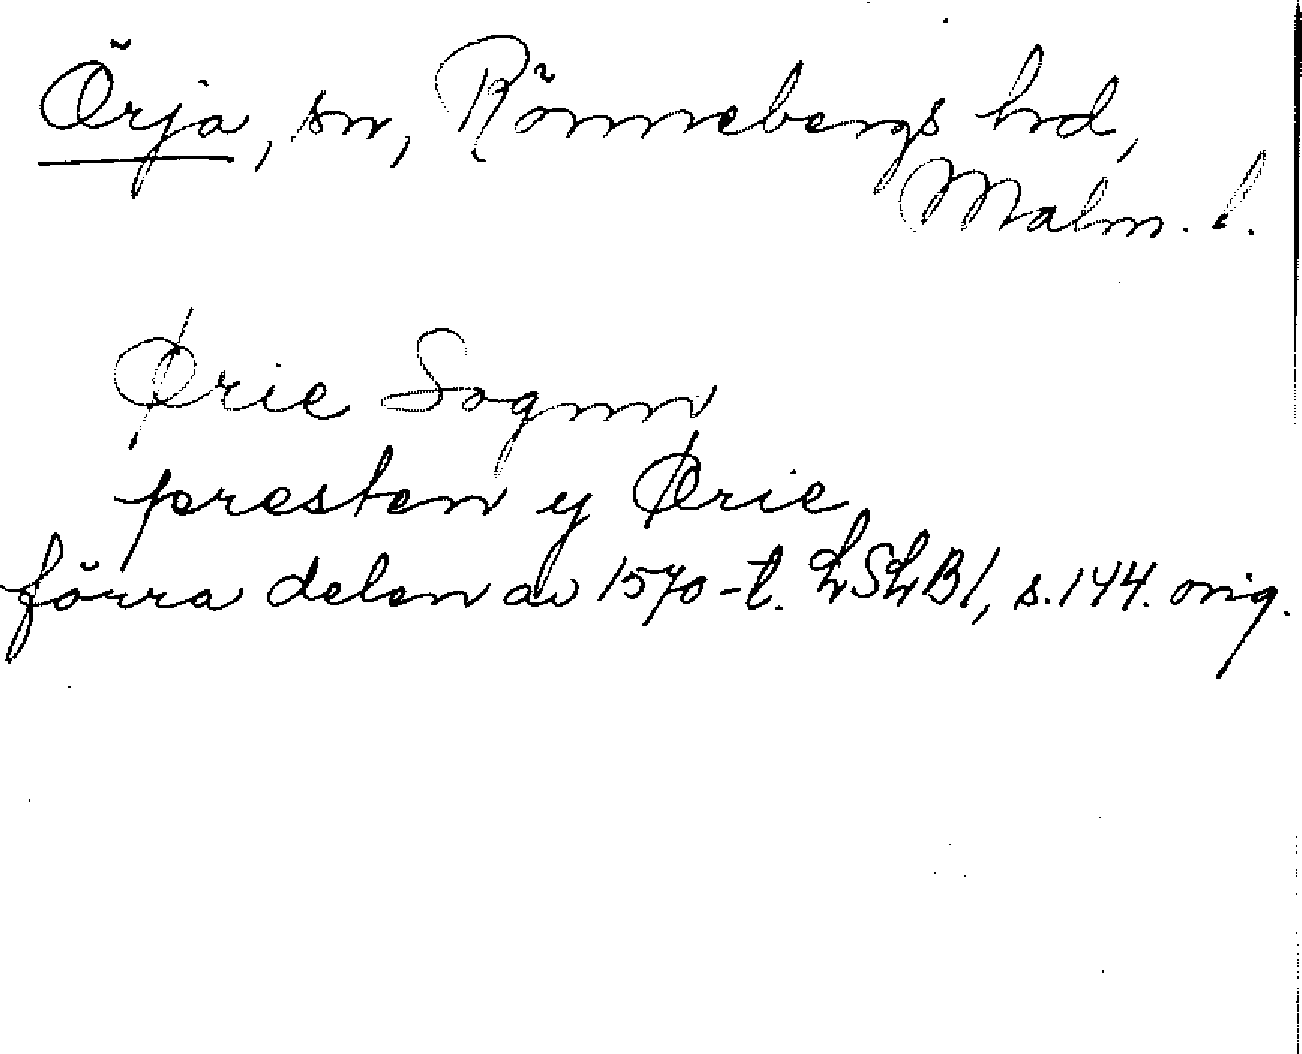 Örja, sn, Rönnebergs hrd,
Malm. l.
Ørie Sognn
presten y Ørie
förra delen av 1570-t. LSLB1, s. 144. orig.